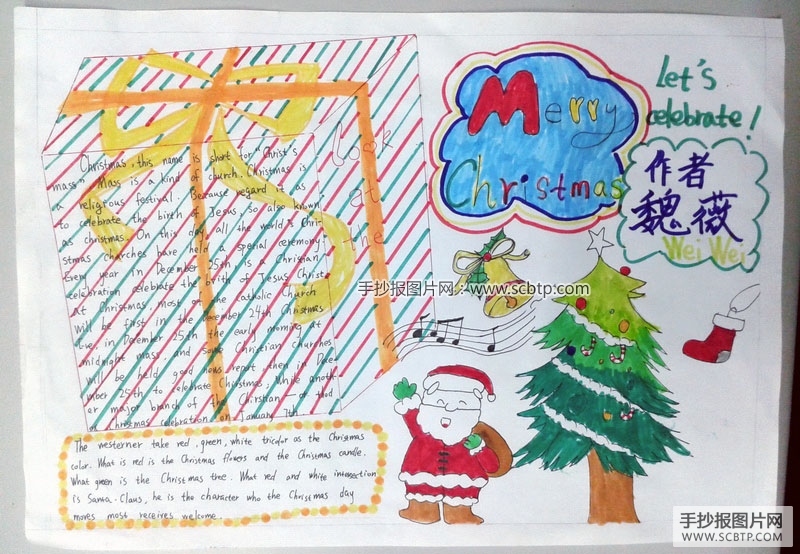 Merry
Christmas
Let's
celebrate!
作者
魏薇
Wei Wei
Look
at
the
Christmas, this name is short for "Christ's
mass". Mass is a kind of church. Christmas is
a religious festival. Because regard it as
to celebrate the birth of Jesus, so also known
as christmas. On this day, all the world's Chri-
stmas charches have held a special ceremony.
Every year in December 25th is a Christian
celebration celebrate the brith of Jesus Christ
at Christmas, most of the Catholic Church
will be first in the December 24th Christmas
Eve, in December 25th the early morning at
midnight mass, and some Christian churches
will be held good news report, then in Dece-
mber 25th to celebrate Christmas; While anoth-
er major branch of the
or Christmas celebration on January 7th
The westerner take red, green, white tricolor as the Christmas
color. What is red is the Christmas flowers and the Christmas candle.
What green is the Christmas tree. What red and white intersection
is Santa-Claus, he is the character who the Christmas day
moves most receives welcome.
手抄报图片网：www.scbtp.com
手抄报图片网
WWW.SCBTP.COM